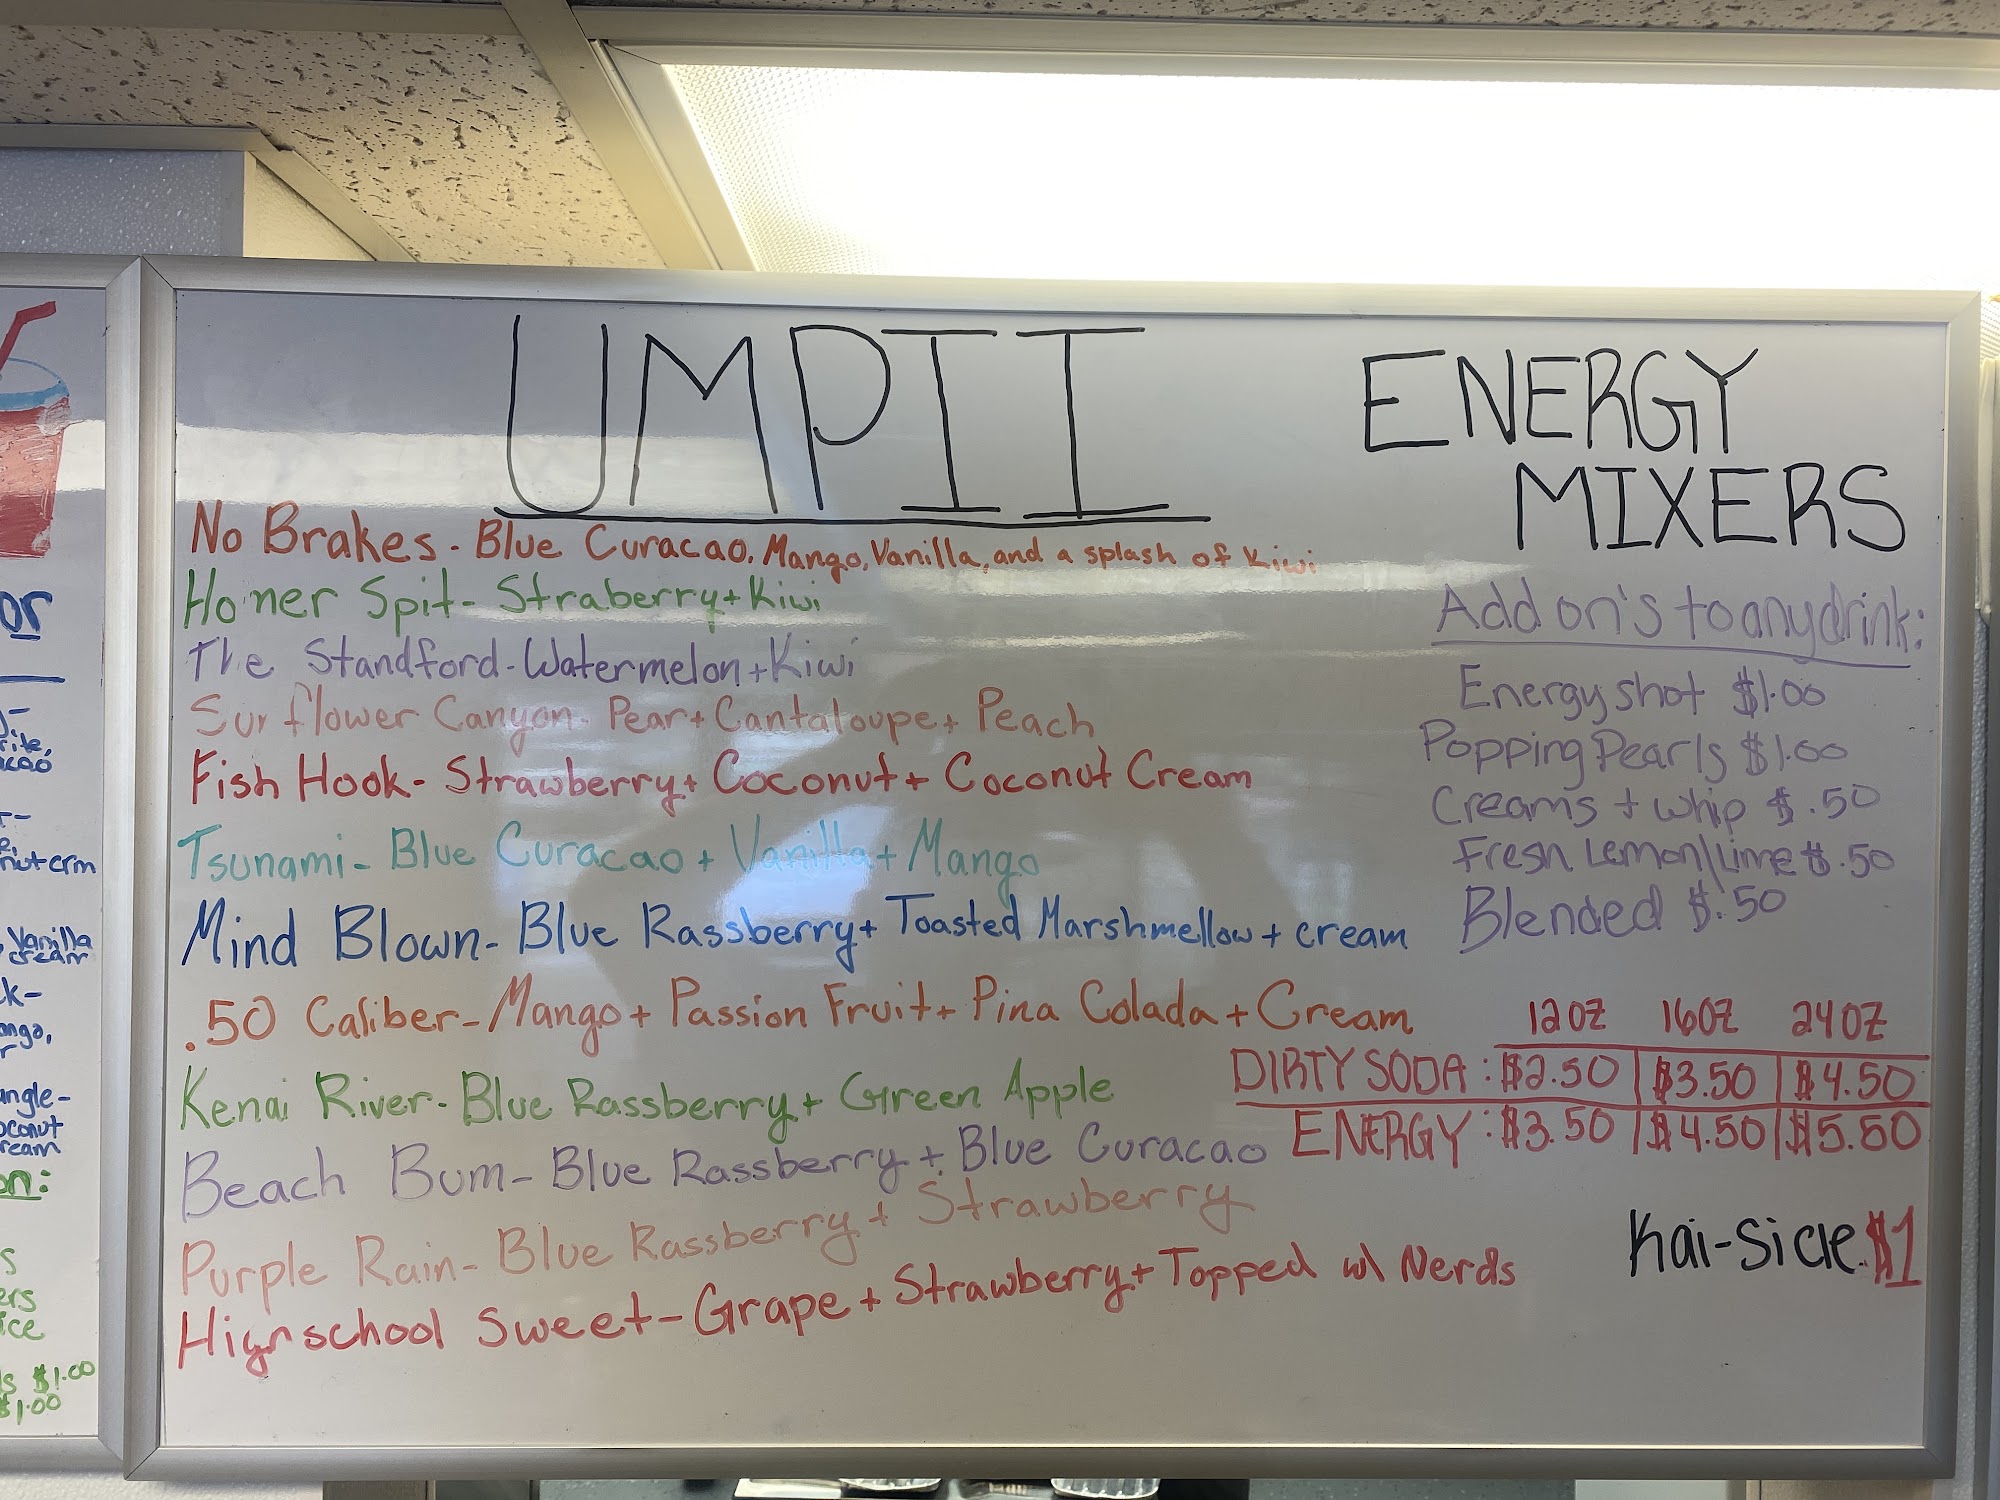 UMPII
ENERGY
MIXERS
No Brakes - Blue Curacao, Mango, Vanilla, and a splash of Kiwi
Homer Spit - Straberry + Kiwi
The Standford - Watermelon + Kiwi
Sunflower Canyon - Pear + Cantaloupe + Peach
Fish Hook - Strawberry + Coconut + Coconut Cream
Tsunami - Blue Curacao + Vanilla + Mango
Mind Blown - Blue Rassberry + Toasted Marshmellow + cream
.50 Caliber - Mango + Passion Fruit + Pina Colada + Cream
Kenai River - Blue Rassberry + Green Apple
Beach Bum - Blue Rassberry + Blue Curacao
Purple Rain - Blue Rassberry + Strawberry
Highschool Sweet - Grape + Strawberry + Topped w/ Nerds
Add on's to any drink:
Energy shot $1.00
Popping Pearls $1.00
Creams + whip $.50
Fresh Lemon/Lime $.50
Blended $.50
12OZ 16OZ 24OZ
DIRTY SODA: $2.50 $3.50 $4.50
ENERGY: $3.50 $4.50 $5.50
Kai-Sicle $1
or
Vanilla
cream
k-
on:
$1.00
$1.00